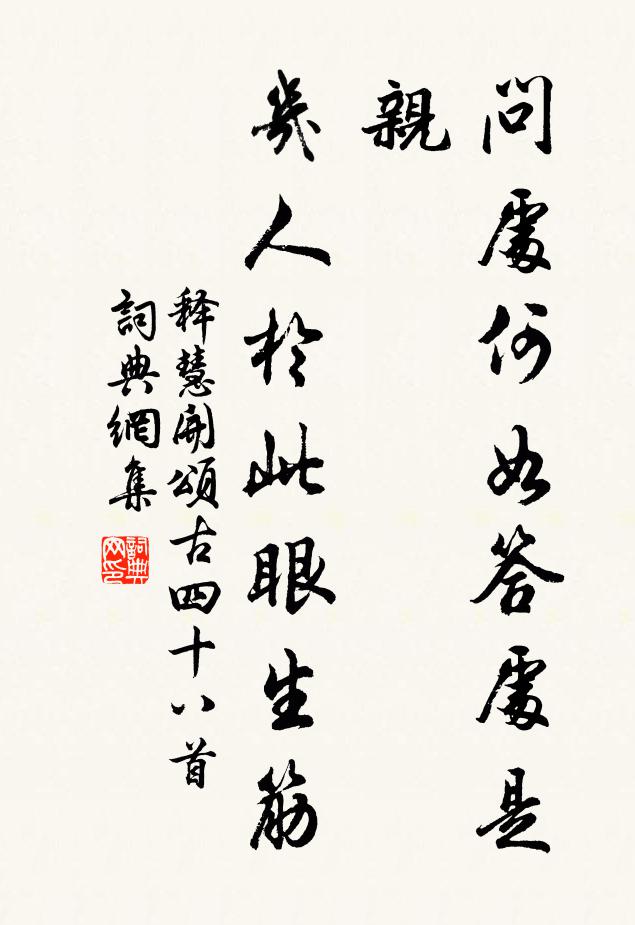 問處何如答處是
親
幾人於此眼生筋
释慧開頌古四十八首
詞典網集
詞典
网印